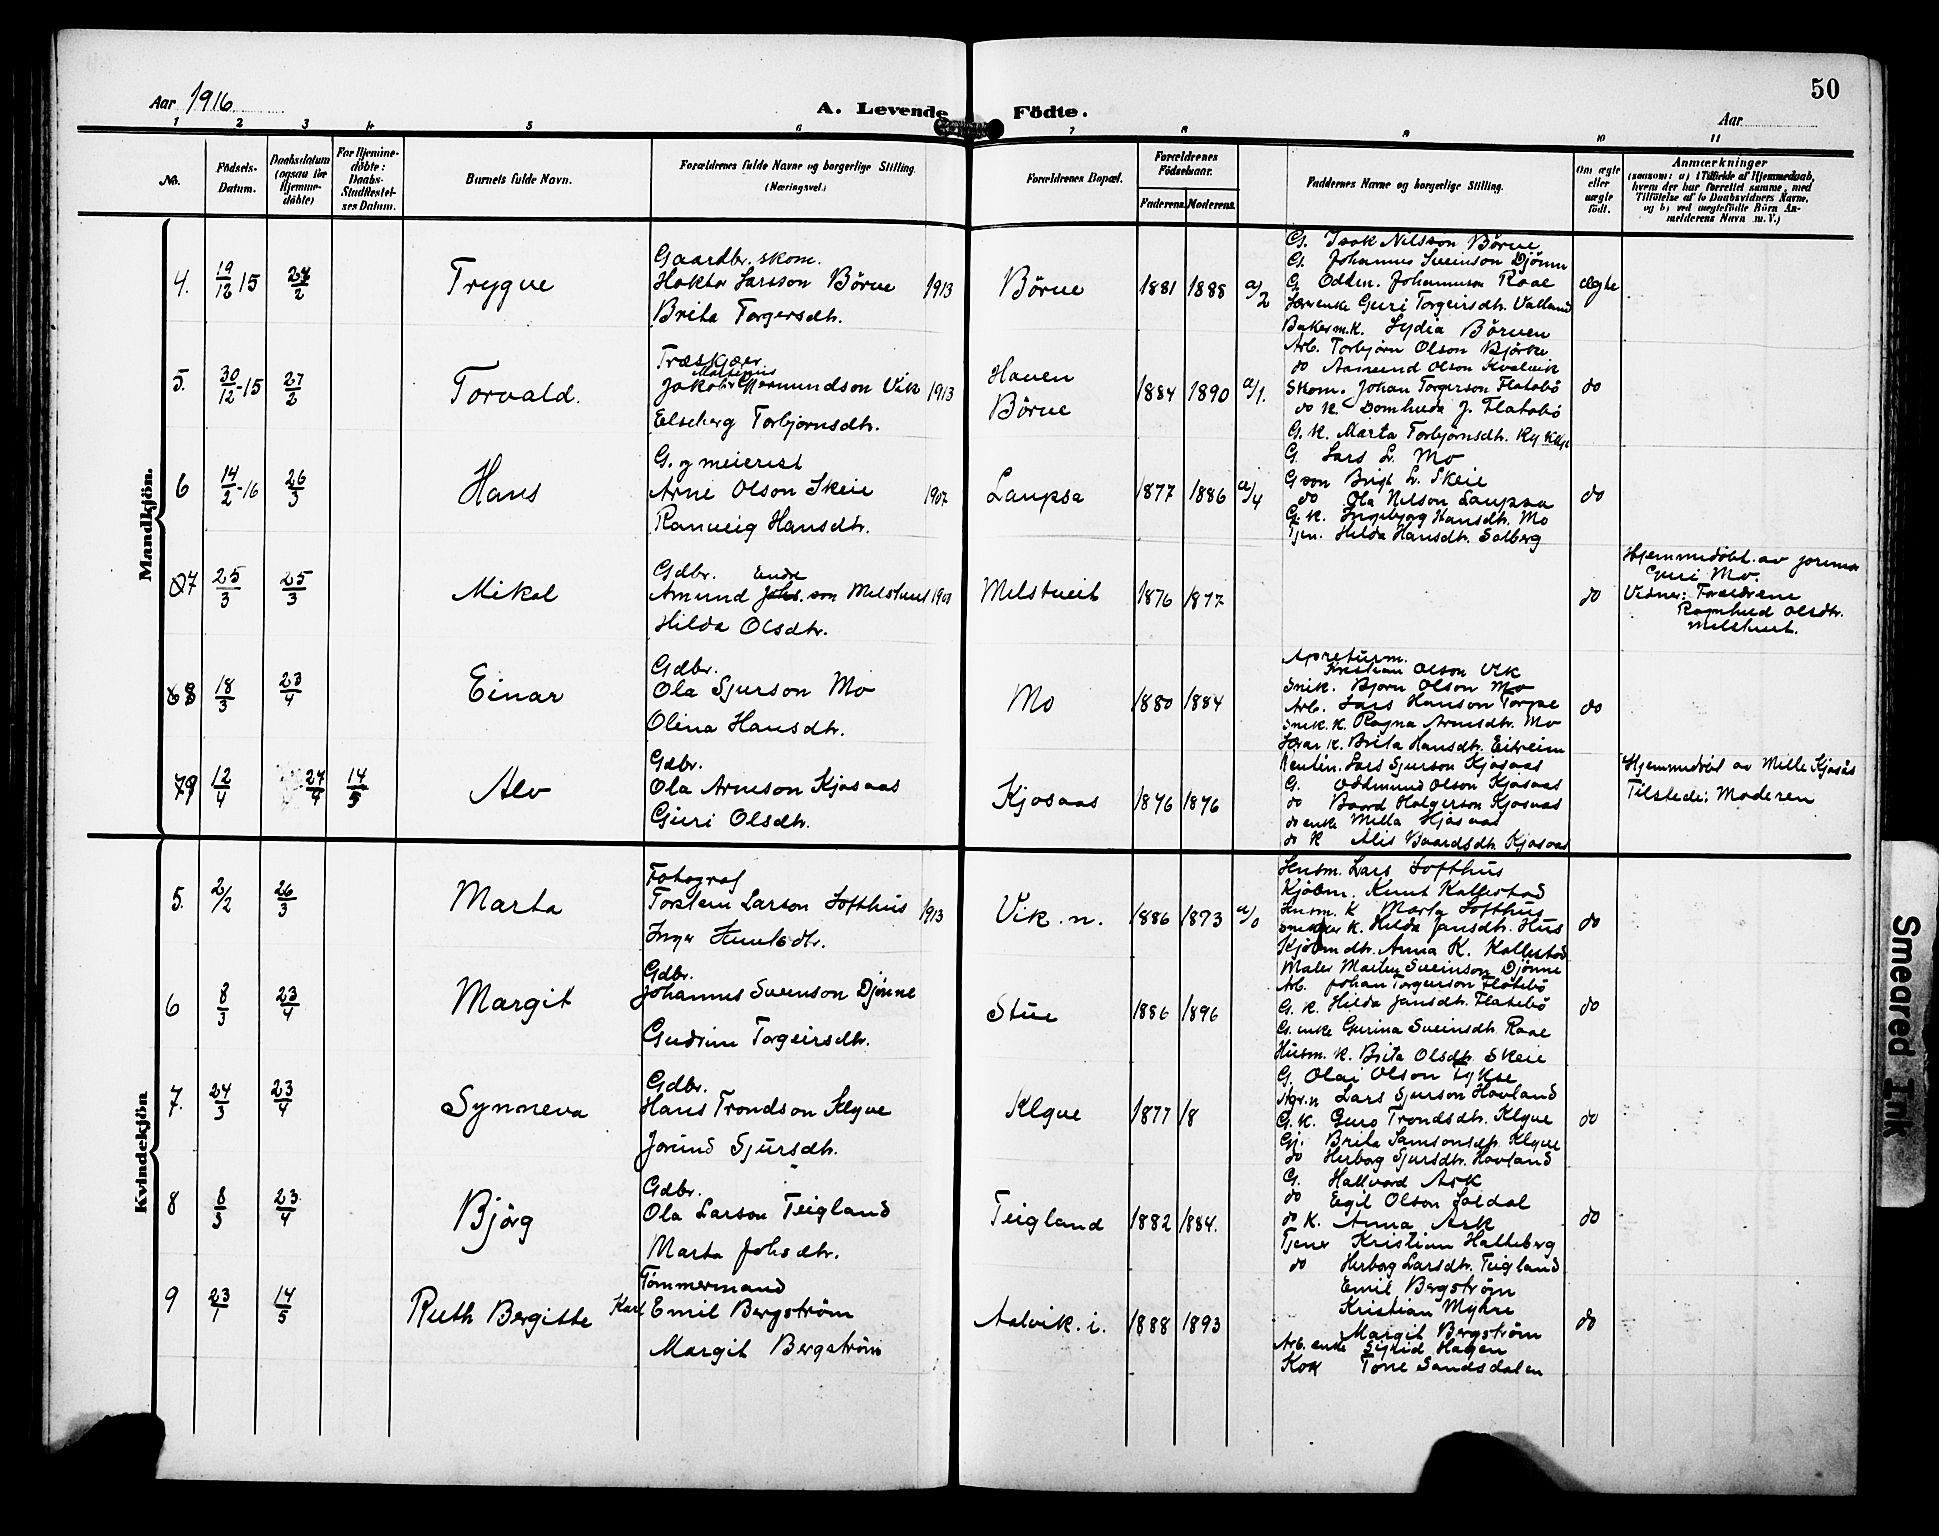 50
Aar 1916
A. Levende Födte.
Aar
1 2 3 4 5 6 7 8 9 10 11
No.
Födsels-Datum.
Daabsdatum (ogsaa for Hjemmedöbte)
For Hjemmedöbte: Daabs-Stadfestelses Datum.
Barnets fulde Navn.
Forældrenes fulde Navne og borgerlige Stilling.
(Næringsvei.)
Forældrenes Bopæl.
Forældrenes Födselsaar.
Faderens. Moderens.
Faddernes Navne og borgerlige Stilling.
Om ægte eller uægte født.
Anmærkninger
(saasom: a) i Tilfælde af Hjemmedaab, hvem der har forrettet samme, med Tilföielse af to Daabsvidners Navne, og b) ved uægtefödte Börn Anmelderens Navn m. V.)
Mandkjön.
4. 19/12 15 27/2 Trygve
Gaardbr. skom.
Hakto Larsson Börve 1913
Brita Torgersdtr.
Börve 1881 1888 a/2
G. Isak Nilsson Börve
G. Johannes Sveinson Djönne
G. Oddm. Johannson Raae
Guri Torgeirsdtr. Valland
Bakerm.k. Lydia Börven
ægte
5. 30/12-15 27/2 Torvald.
Træskjær
Jakob Mattenius Germundson Vik 1913
Elseberg Torbjørnsdtr.
Haven
Börve 1884 1890 a/1.
Arb. Torbjørn Olson Bjørke
do Aamund Olson Kvalvik
Skom. Johan Torgerson Flatabö
do k. Domhilda J. Flatabö
G. K. Marta Torbjørnsdtr.
do
6 14/2-16 26/3 Hans
G. og meierist
Arne Olson Skeie 1907
Ranveig Hansdtr.
Laupsa 1877 1886 a/4
G. Lars L. Mo
G son Brigt L. Skeie
do Ola Nilson Laupsa
G. K. Ingebjørg Hansdtr. Mo
Tjen. Hilda Hansdtr. Solberg
do
7 25/3 25/3 Mikal
Gdbr. Endr
Amund Johs.son Melstveit 1903
Hilda Olsdtr.
Melstveit 1876 1877
do
Hjemmedöbt av jormor
Guri Mo.
Vidner: Forældrene
Ragnhild Olsdtr.
Melstveit.
8 18/3 23/4 Einar
Gdbr.
Ola Sjurson Mo
Olina Hansdtr.
Mo 1880 1884
Apreturm.
Kristian Olson Vik
Snik. Bjørn Olson Mo
Arb. Lars Hanson Torpe
Snik. K. Ragna Arnesdtr. Mo
K. Brita Hansdtr. Eitreim
do
79 12/4 24/4 14/5 Alv
Gdbr.
Ola Arneson Kjosaas
Guri Olsdtr.
Kjosaas 1876 1876
Lars Sjurson Kjosaas
G. Oddmund Olson Kjosaas
do Baard Holgerson Kjosaas
do enke Milla Kjosaas
do K Alis Baardsdtr. Kjosaas
Hjemmedöbt av Mille Kjosås
Tilstede: Moderen
Kvindekjön
5. 2/2 26/3 Marta
Fotograf
Torstein Larson Lofthus 1913
Inger Knutsdtr.
Vik. n. 1886 1873 a/0
Husm. Lars Lofthus
Kjöbm. Knut Kallestad
Husm. K Marta Lofthus
Snikker k. Hilda Jansdtr. Hus
Kjöbmdtr. Anna K. Kallestad
do
6 8/3 23/4 Margit
Gdbr.
Johannes Sveinson Djönne
Gudrun Torgeirsdtr.
Stue 1886 1896
Maler Marten Sveinson Djönne
Arb. Johan Torgerson Flatebö
G. K. Hilda Jansdtr. Flatebö
G. enke Gurina Sveinsdtr. Raae
Husm. K. Brita Olsdtr. Skeie
do
7. 24/3 23/4 Synneva
Gdbr.
Hans Trondson Klyve
Jorund Sjursdtr.
Klyve 1877 18
G. Olai Olson Tykse
Lars Sjurson Hovland
G. K. Guro Trondsdtr. Klyve
Gj. Brita Samsonsdtr. Klyve
do Herborg Sjursdtr. Hovland
do
8 8/3 23/4 Bjørg
Gdbr.
Ola Larson Teigland
Marta Johsdtr.
Teigland 1882 1884.
G. Hallvard Ask
do Egil Olson Soldal
do K. Anna Ask
Tjener Kristian Halleberg
do Herborg Larsdtr. Teigland
do
9 23/1 14/5 Ruth Bergitte
Tömmermand
Karl Emil Bergström
Margit Bergström
Aalvik. i. 1888 1893
Emil Bergström
Kristian Myhre
Margit Bergström
Arb. enke Sigrid Hagen
Kok Tone Sandsdalen
do
Smeared Ink